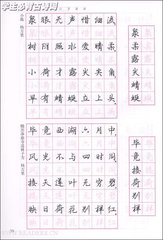 学生必背古诗词
小池 杨万里
泉眼无声惜细流
树阴照水爱晴柔
小荷才露尖尖角
早有蜻蜓立上头
泉柔露尖蜻蜓
晓出净慈寺送林子方 杨万里
毕竟西湖六月中
风光不与四时同
接天莲叶无穷碧
映日荷花别样红
毕竟接荷别样